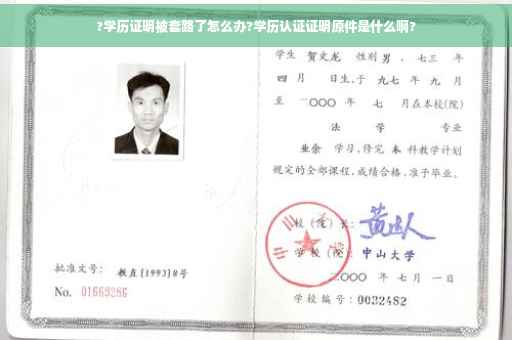 ?学历证明被套路了怎么办?学历认证证明原件是什么啊?
学生 贺文龙 性别 男 、七三 年
四 月 日生,于 九七 年 九 月
至 二〇〇〇 年 七 月在本校(院)
法 学 专业
业余 学习,修完 本 科教学计划
规定的全部课程,成绩合格,准予毕业。
校(院)长:
学校(院): 中山大学
二〇〇〇 年 七 月 一 日
学校编号: 0032482
批准文号: 教直[1993]8号
No. 01669286